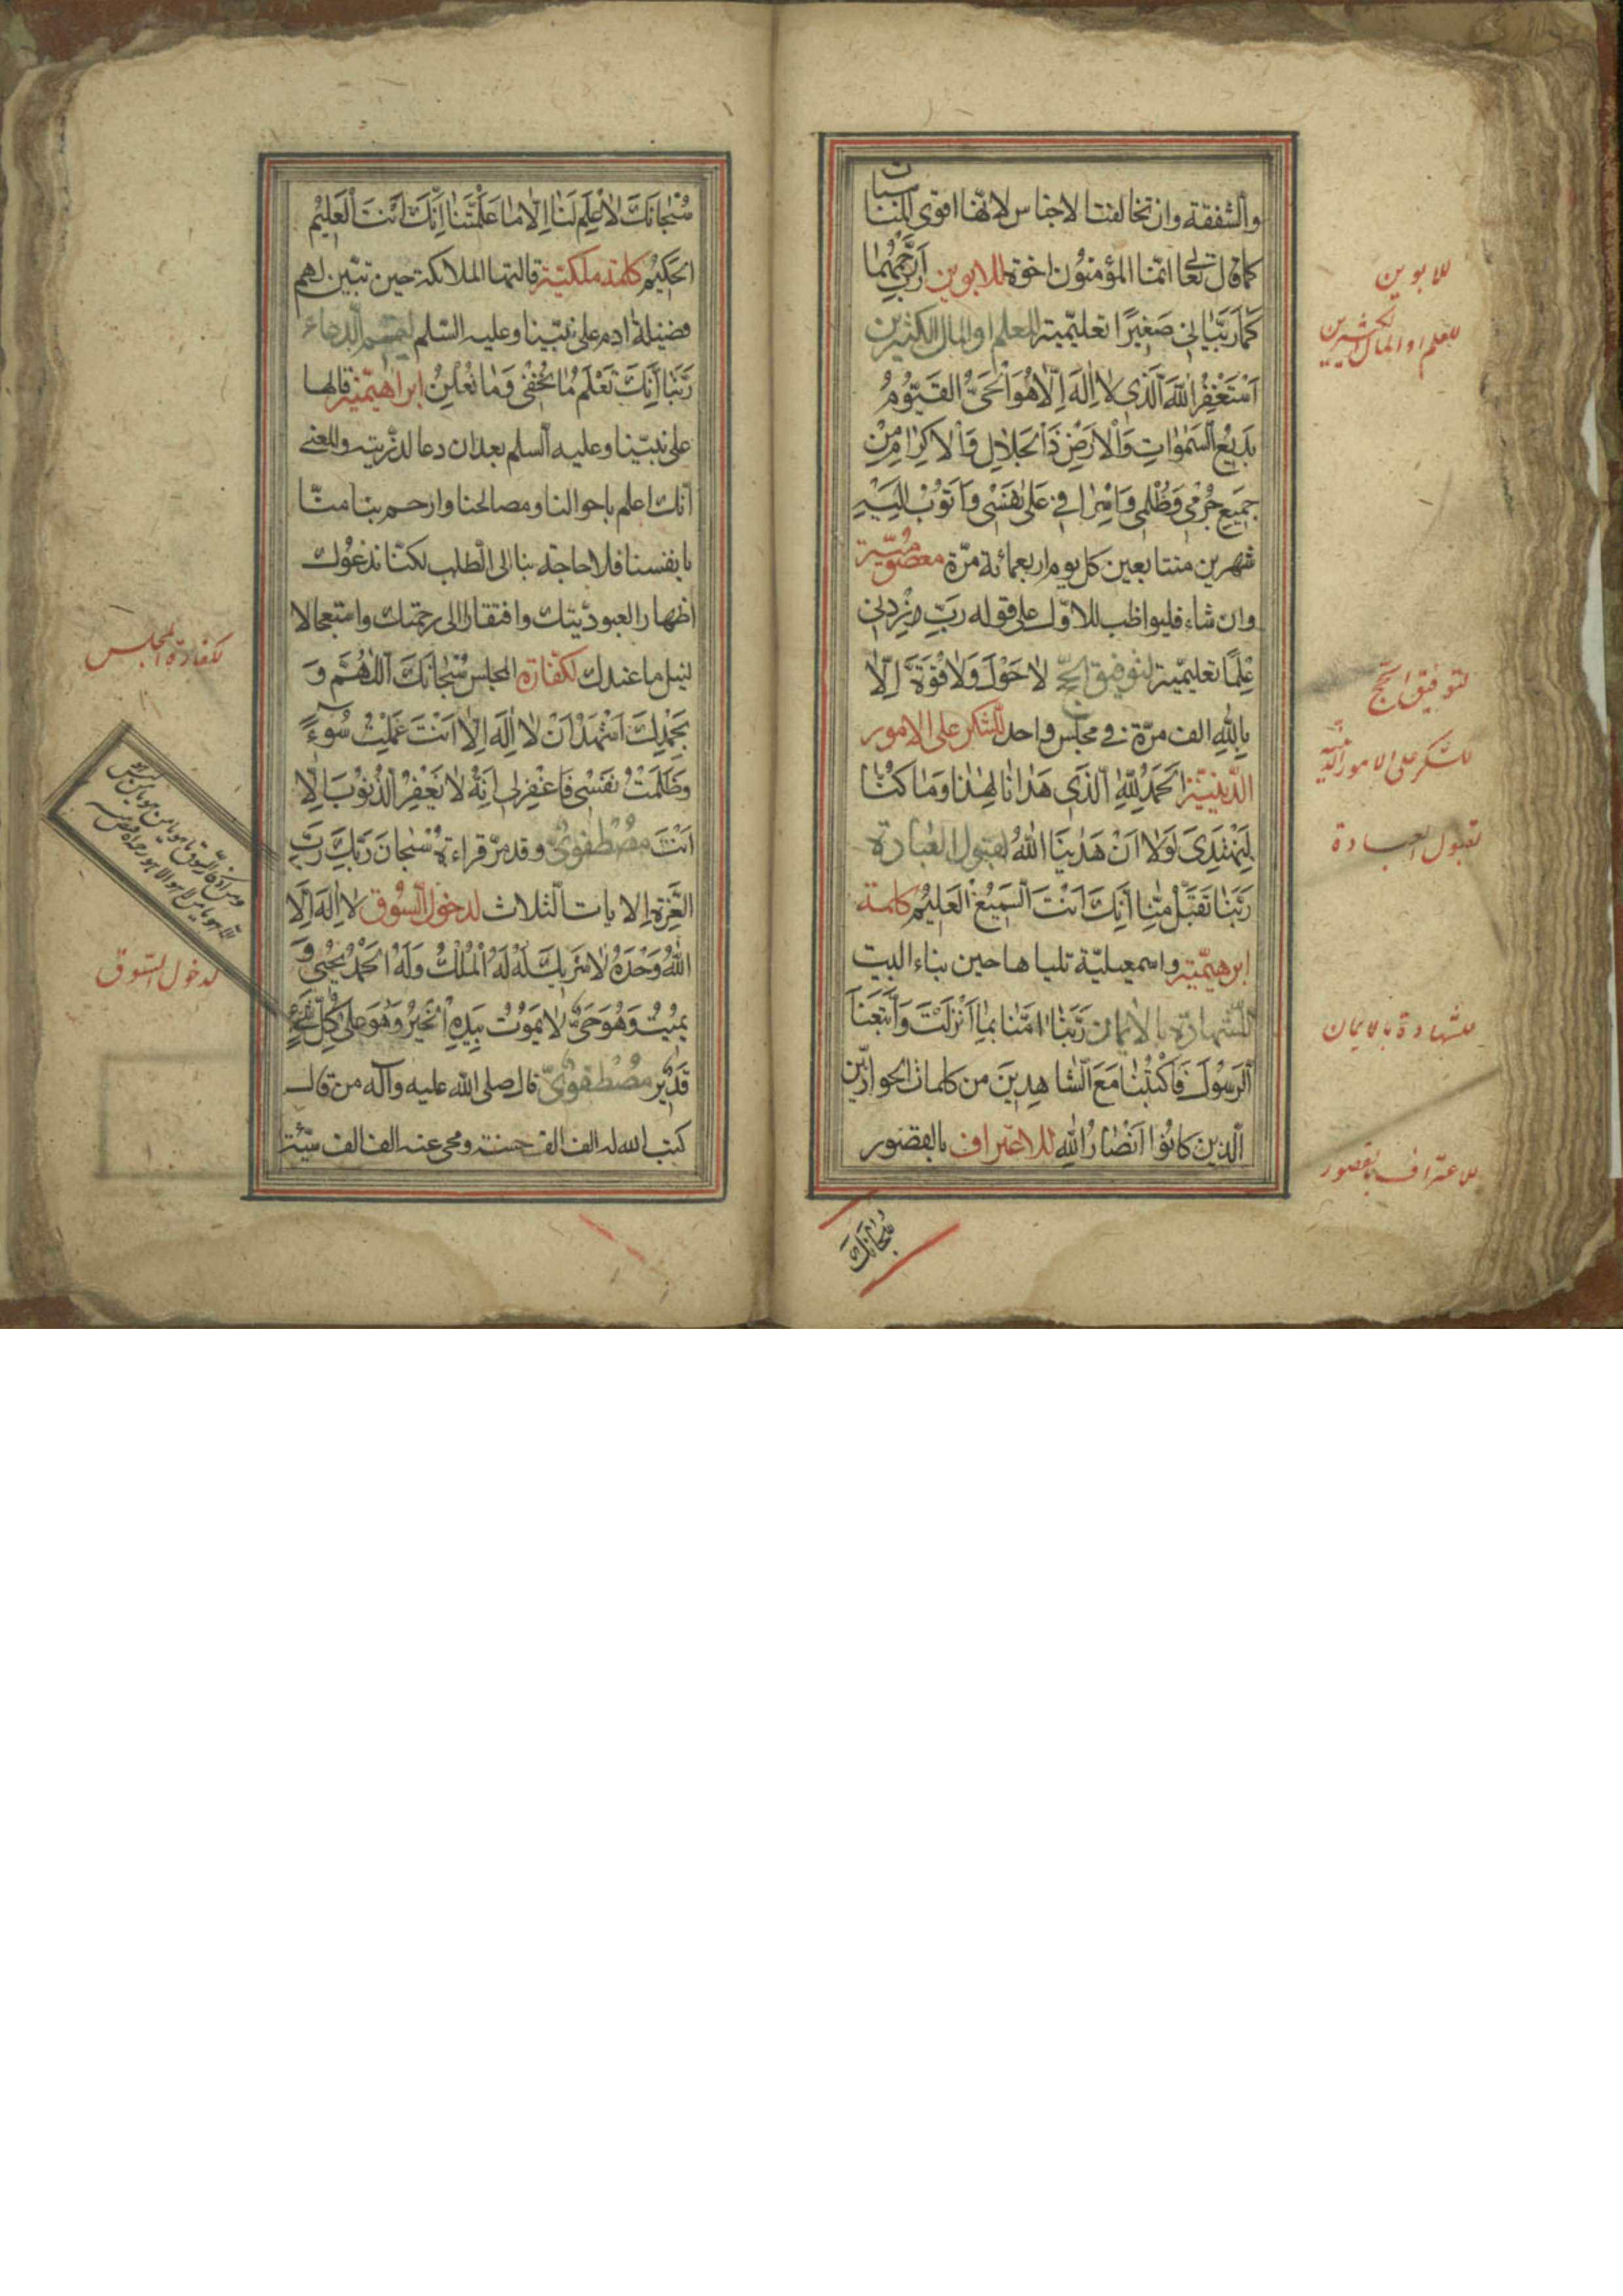 والشفقة وان تخالفتا الاجناس لانها اقوى المناسبات
كما قال تعالى انما المؤمنون اخوة للابوين رَبِّ ارْحَمْهُمَا
كَمَا رَبَّيَانِي صَغِيرًا تعليمية للعلم او المال الكثيرين
اَسْتَغْفِرُ اللهَ الَّذِي لَا اِلَهَ اِلَّا هُوَ الْحَيُّ الْقَيُّومُ
بَدِيعُ السَّمَوَاتِ وَالْاَرْضِ ذَا الْجَلَالِ وَالْاِكْرَامِ مِنْ
جَمِيعِ جُرْمِي وَظُلْمِي وَاِسْرَافِي عَلَى نَفْسِي وَاَتُوبُ اِلَيْهِ
شهرين متتابعين كل يوم اربعمائة مرّة معصومية
وان شاء فليواظب للاوّل على قوله رَبِّ زِدْنِي
عِلْمًا تعليمية لتوفيق الحجّ لَا حَوْلَ وَلَا قُوَّةَ اِلَّا
بِاللهِ الف مرّة في مجلس واحد للشكر على الامور
الدينية اَلْحَمْدُ لِلّٰهِ الَّذِي هَدَانَا لِهَذَا وَمَا كُنَّا
لِنَهْتَدِيَ لَوْلَا اَنْ هَدَيْنَا اللهُ لقبول العبادة
رَبَّنَا تَقَبَّلْ مِنَّا اِنَّكَ اَنْتَ السَّمِيعُ الْعَلِيمُ كلمة
ابرهيمية واسمعيلية تلياها حين بناء البيت
للشهادة بالايمان رَبَّنَا اٰمَنَّا بِمَا اَنْزَلْتَ وَاتَّبَعْنَا
الرَّسُولَ فَاكْتُبْنَا مَعَ الشَّاهِدِينَ من كلمات الحواريّين
الذين كانوا اَنْصَارُ اللهِ للاعتراف بالقصور
سُبْحَانَكَ
للابوين
للعلم او المال الكثيرين
لتوفيق الحج
للشكر على الامور الدينية
لقبول العبادة
للشهادة بالايمان
للاعتراف بالقصور
سُبْحَانَكَ لَا عِلْمَ لَنَا اِلَّا مَا عَلَّمْتَنَا اِنَّكَ اَنْتَ الْعَلِيمُ
الْحَكِيمُ كلمة ملكية قالتها الملائكة حين تبيّن لهم
فضيلة ادم على نبيّنا وعليه السّلم لتتميم الدعاء
رَبَّنَا اِنَّكَ تَعْلَمُ مَا نُخْفِي وَمَا نُعْلِنُ ابراهيمية قالها
على نبيّنا وعليه السلم بعد ان دعا لذريته والمعنى
انك اعلم باحوالنا ومصالحنا وارحم بنا منّا
بانفسنا فلا حاجة بنا الى الطلب لكنّا ندعوك
اظهارا لعبوديتك وافتقارا الى رحمتك واستعجالا
لنيل ما عندك لكفارة المجلس سُبْحَانَكَ اللّٰهُمَّ وَ
بِحَمْدِكَ اَشْهَدُ اَنْ لَا اِلَهَ اِلَّا اَنْتَ عَمِلْتُ سُوءً
وَظَلَمْتُ نَفْسِي فَاغْفِرْ لِي اِنَّهُ لَا يَغْفِرُ الذُّنُوبَ اِلَّا
اَنْتَ مصطفوي وقد مرّ قراءة سُبْحَانَ رَبِّكَ رَبِّ
الْعِزَّةِ الايات الثلاث لدخول السوق لَا اِلَهَ اِلَّا
اللهُ وَحْدَهُ لَا شَرِيكَ لَهُ لَهُ الْمُلْكُ وَلَهُ الْحَمْدُ يُحْيِي وَ
يُمِيتُ وَهُوَ حَيٌّ لَا يَمُوتُ بِيَدِهِ الْخَيْرُ وَهُوَ عَلَى كُلِّ شَيْءٍ
قَدِيرٌ مصطفوي قال صلى الله عليه وآله من قال
كتب الله له الف الف حسنة ومحى عنه الف الف سيّئة
لكفارة المجلس
لدخول السوق